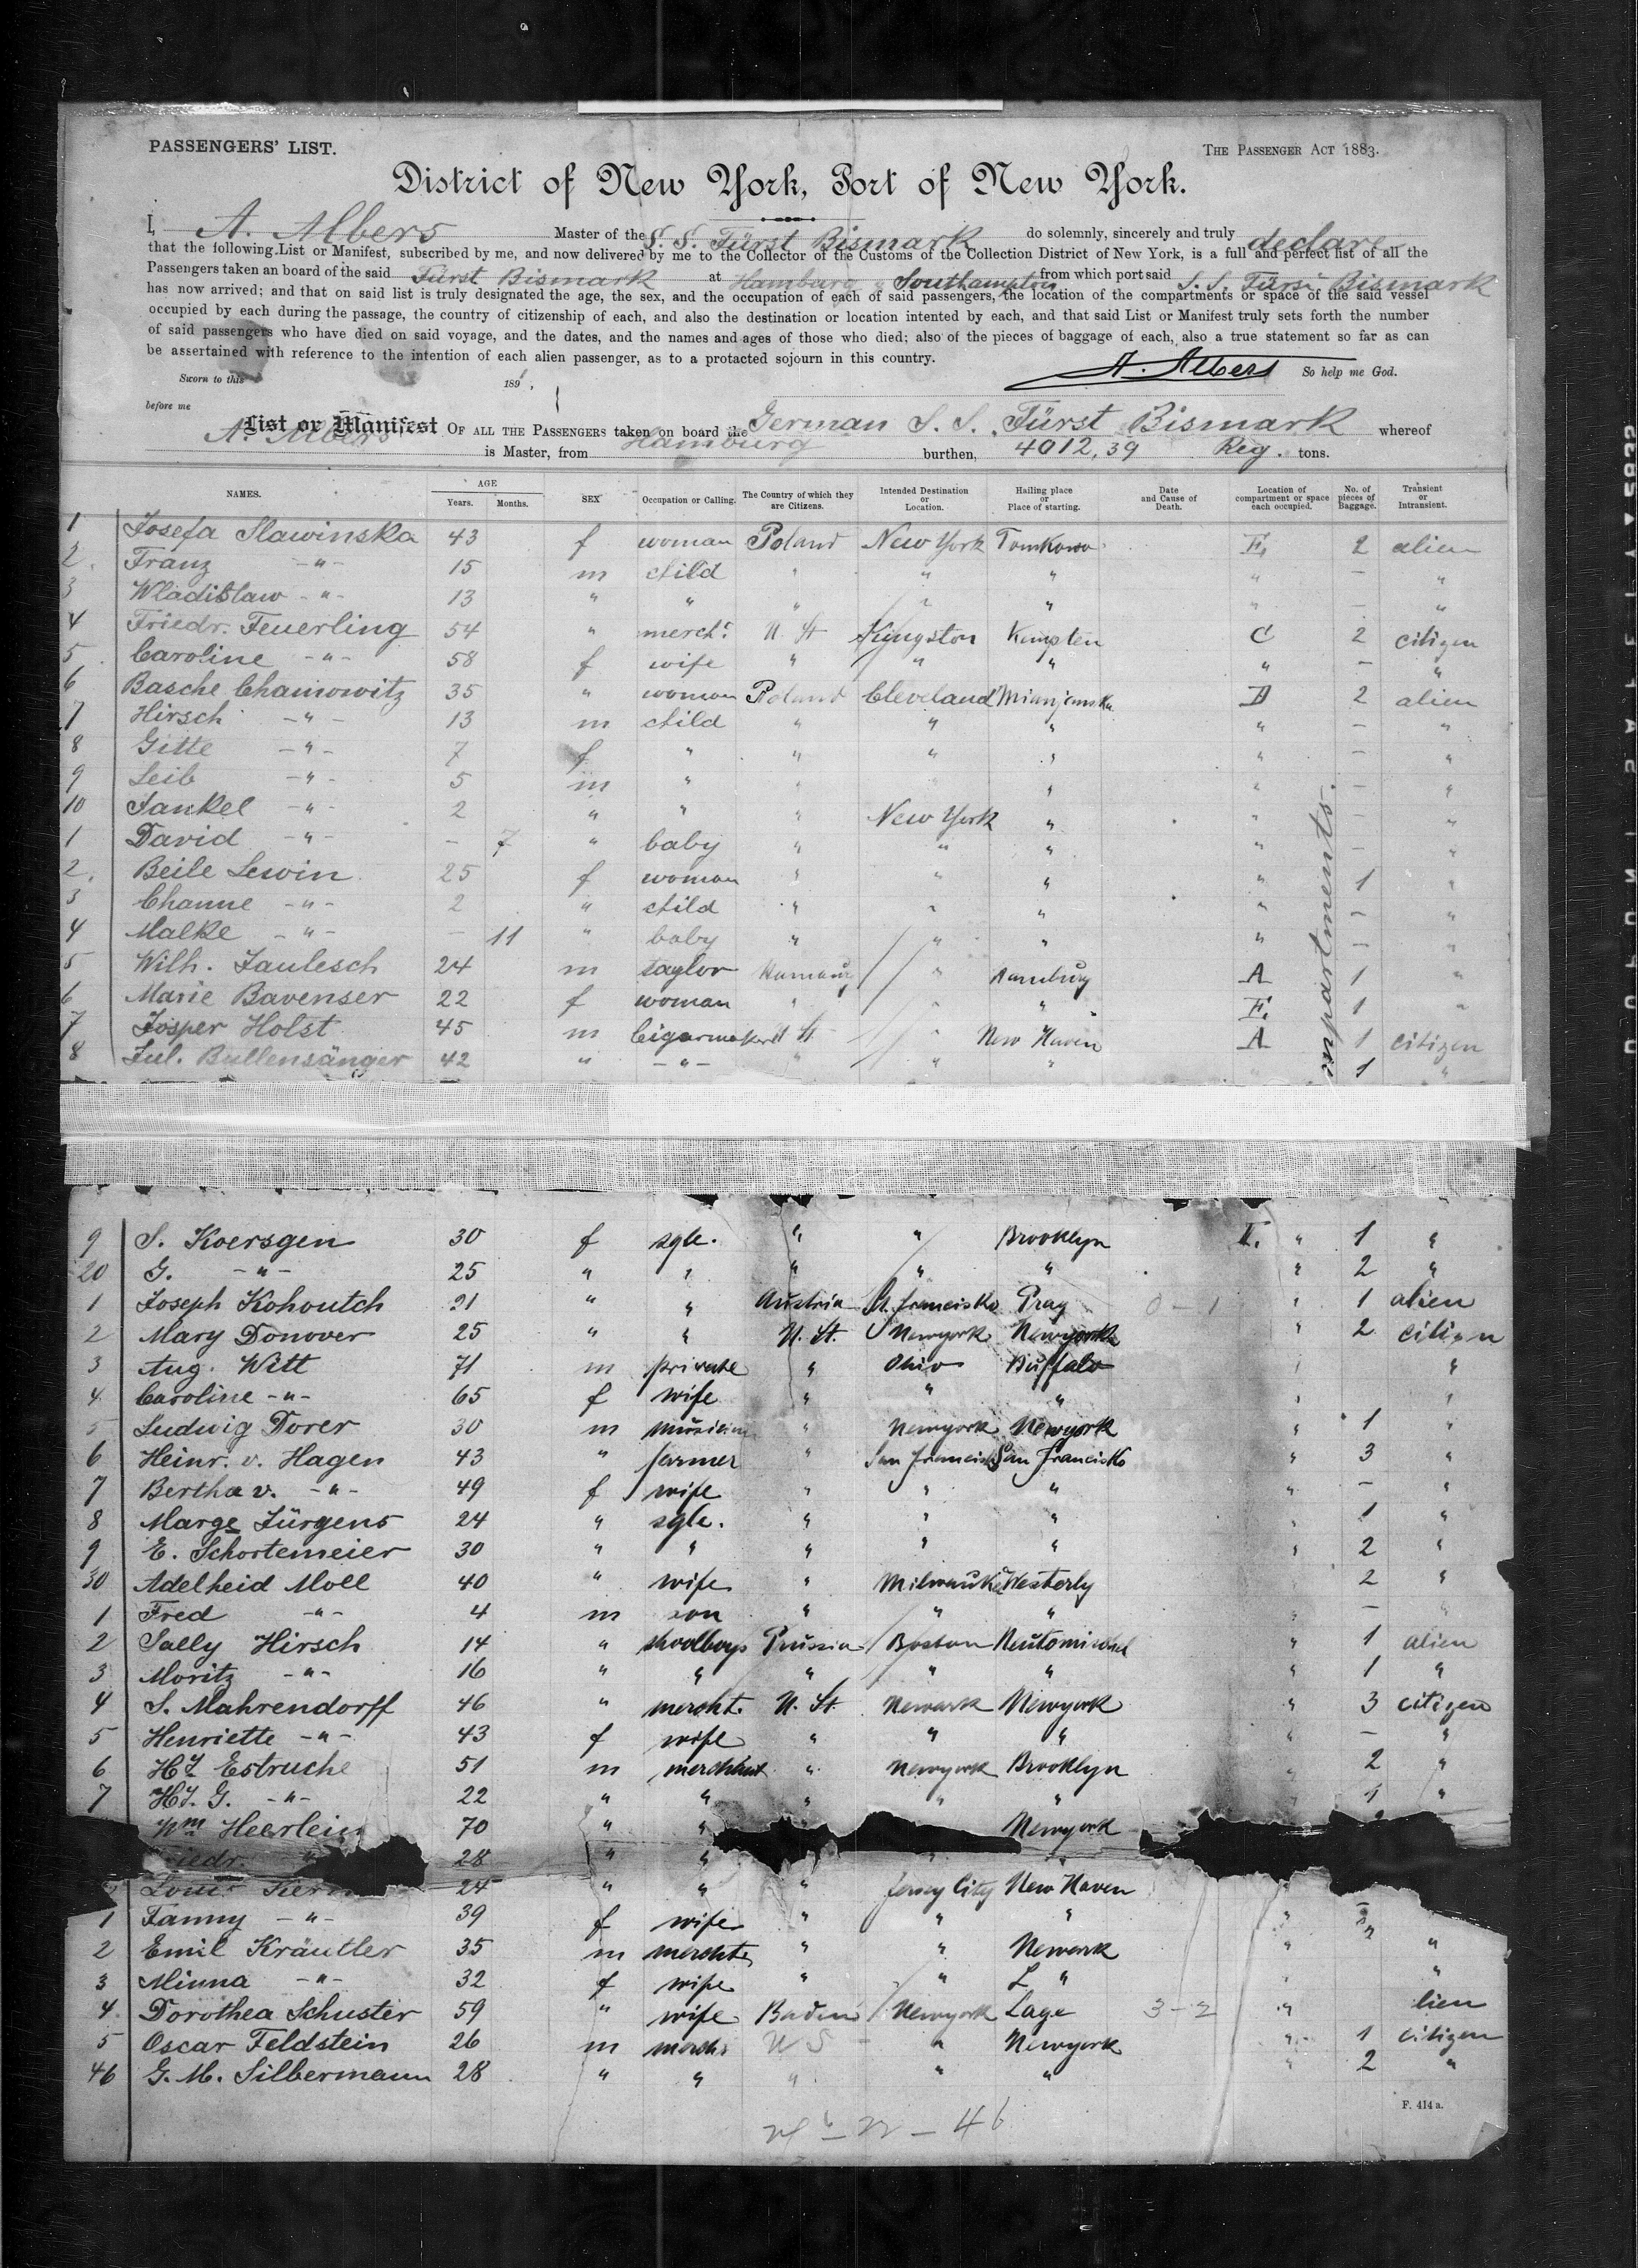 PASSENGERS' LIST.
THE PASSENGER ACT 1883.
District of New York, Port of New York.
I, A. Albers Master of the S. S. Fürst Bismark do solemnly, sincerely and truly declare
that the following List or Manifest, subscribed by me, and now delivered by me to the Collector of the Customs of the Collection District of New York, is a full and perfect list of all the
Passengers taken an board of the said Fürst Bismark at Hamburg & Southampton from which port said S. S. Fürst Bismark
has now arrived; and that on said list is truly designated the age, the sex, and the occupation of each of said passengers, the location of the compartments or space of the said vessel
occupied by each during the passage, the country of citizenship of each, and also the destination or location intented by each, and that said List or Manifest truly sets forth the number
of said passengers who have died on said voyage, and the dates, and the names and ages of those who died; also of the pieces of baggage of each, also a true statement so far as can
be assertained with reference to the intention of each alien passenger, as to a protacted sojourn in this country.
A. Albers So help me God.
Sworn to this 189 ,
before me
List or Manifest OF ALL THE PASSENGERS taken on board the German S. S. Fürst Bismark whereof
A. Albers is Master, from Hamburg burthen, 4012,39 Reg. tons.
NAMES. AGE Years. Months. SEX Occupation or Calling. The Country of which they are Citizens. Intended Destination or Location. Hailing place or Place of starting. Date and Cause of Death. Location of compartment or space each occupied. No. of pieces of Baggage. Transient or Intransient.
1 Josefa Slawinska 43 f woman Poland New York Tomkowo E, 2 alien
2 Franz -"- 15 m child " " " " - "
3 Wladislaw -"- 13 " " " " " " - "
4 Friedr. Feuerling 54 " merch't U. St Kingston Kempten C 2 citizen
5 Caroline -"- 58 f wife " " " " - "
6 Basche Chaimowitz 35 " woman Poland Cleveland D 2 alien
7 Hirsch -"- 13 m child " " " " - "
8 Gitte -"- 7 f " " " " " - "
9 Leib -"- 5 m " " " " - "
10 Jankel -"- 2 " " " New York " " - "
1 David -"- - 7 " baby " " " " - "
2 Beile Lewin 25 f woman " " " " 1 "
3 Channe -"- 2 " child " " " " - "
4 Malke -"- - 11 " baby " " " " - "
5 Wilh. Jaulesch 24 m taylor " Hamburg A 1 "
6 Marie Bavenser 22 f woman " " " E, 1 "
7 Josper Holst 45 m Cigarmaker U St " New Haven A 1 citizen
8 Jul. Bullensänger 42 " -"- " " " 1 "
9 S. Koersgen 30 f sgle. " " Brooklyn II. " 1 "
20 G. -"- 25 " " " " " " 2 "
1 Joseph Kohoutch 21 " " Austria St. Francisko Prag 0-1 " 1 alien
2 Mary Donover 25 " " U. St. Newyork Newyork " 2 citizen
3 Aug. Witt 71 m private " Ohio Buffalo " "
4 Caroline -"- 65 f wife " " " " "
5 Ludwig Dorer 30 m musician " Newyork Newyork " 1 "
6 Heinr. v. Hagen 43 " farmer " San Francisko San Francisko " 3 "
7 Bertha v. -"- 49 f wife " " " " - "
8 Marge Jürgens 24 " sgle. " " " " 1 "
9 E. Schortemeier 30 " " " " " " 2 "
30 Adelheid Moll 40 " wife " Milwaukee Westerly 2 "
1 Fred -"- 4 m son " " " " - "
2 Sally Hirsch 14 " schoolboys Prussia Boston Neutomischel " 1 alien
3 Moritz -"- 16 " " " " " " 1 "
4 S. Mahrendorff 46 " mercht. U. St. Newark Newyork " 3 citizen
5 Henriette -"- 43 f wife " " " " - "
6 Hy Estruche 51 m merchant " Newyork Brooklyn " 2 "
7 Hy. G. -"- 22 " " " " " " 1 "
Wm Heerlein 70 " " Newyork
Friedr. 28 " " "
Louis 24 " " " Jersey City New Haven "
1 Fanny -"- 39 f wife " " " " -
2 Emil Kräutler 35 m mercht. " " Newark " 2 "
3 Minna -"- 32 f wife " " " " "
4 Dorothea Schuster 59 " wife Baden Newyork Lage 3-2 " lien
5 Oscar Feldstein 26 m mercht U S " Newyork " 1 citizen
46 G. M. Silbermann 28 " " " " " " 2 "
46
F. 414a.